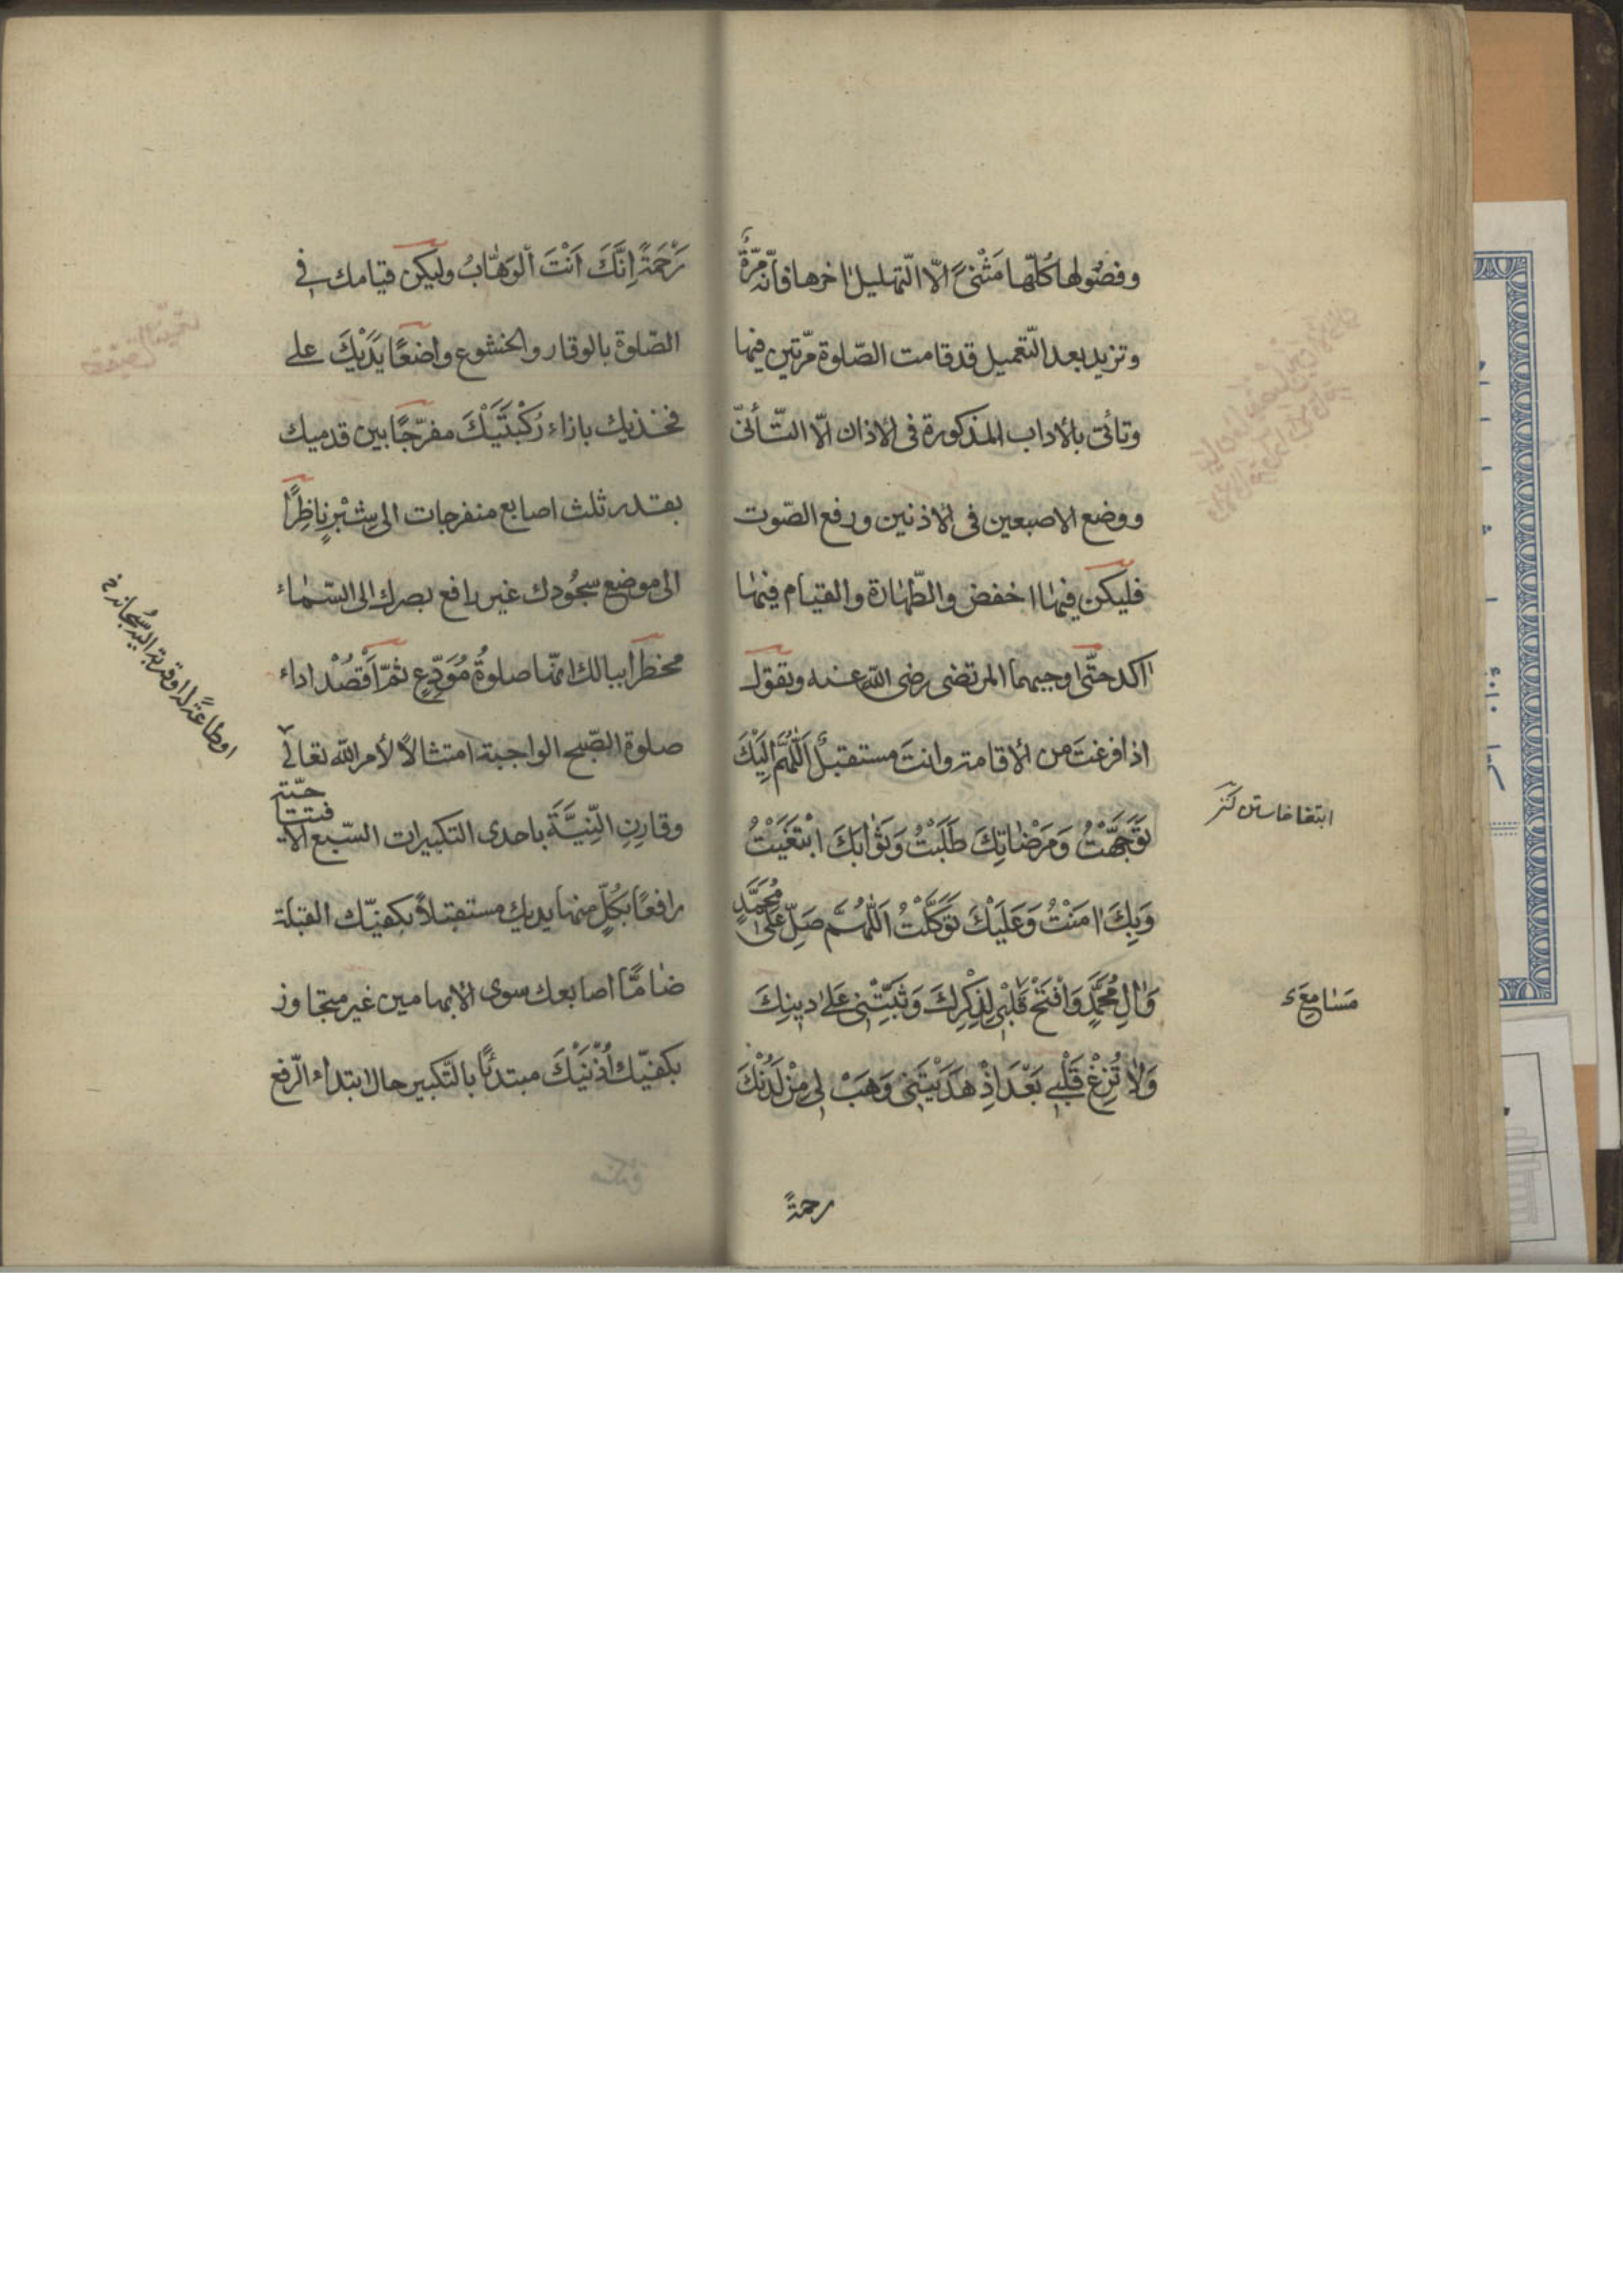 وفصُولها كُلّها مَثْنىً الّا التّهليل اٰخرها فانّه مرّةٌ
وتزيد بعد التّعميل قد قامت الصّلوة مرّتين فيها
وتأتى بالاداب المذكورة فى الاذان الّا التّأنّى
ووضع الاصبعين فى الاذنين ورفع الصّوت
فليكن فيهٰا اخفض والطّهٰارة والقيٰام فيهٰا
اٰكد حتّى اوجبهما المرتضى رضى اللّٰه عنه وتقول
اذا فرغتَ من الاقامة وانتَ مستقبلٌ اَللّٰهُمَّ اِلَيْكَ
تَوَجَّهْتُ وَمَرْضٰاتِكَ طَلَبْتُ وَثَوٰابَكَ ابْتَغَيْتُ
وَبِكَ اٰمَنْتُ وَعَلَيْكَ تَوَكَّلْتُ اَللّٰهُمَّ صَلِّ عَلىٰ مُحَمَّدٍ
وَاٰلِ مُحَمَّدٍ وَافْتَحْ قَلْبى لِذِكْرِكَ وَثَبِّتْنى عَلىٰ دينِكَ
وَلاٰ تُزِغْ قَلْبى بَعْدَ اِذْ هَدَيْتَنى وَهَبْ لى مِنْ لَدُنْكَ
رحمةً
ابتغا خاستن كنز
مَسٰامِعَ
رَحْمَةً اِنَّكَ اَنْتَ الْوَهّٰابُ وليكن قيامك فى
الصّلوة بالوقار والخشوع واضعًا يَدَيْكَ على
فخذيك بازاء رُكْبَتَيْكَ مفرّجًا بين قدميك
بقدر ثلث اصابع منفرجات الى شبْرٍ نٰاظِرًا
الى موضع سجُودك غير رافع بصرك الى السّمٰاء
مخطرا ببالك انّها صلوةُ مُوَدِّعٍ ثمّ اَقْصُدْ اداء
صلوة الصّبح الواجبة امتثالًا لأمر اللّٰه تعالى
وقارِنِ النِّيَّةَ باحدى التكبيرات السّبع الافتتاحيّة
رافعًا بكُلٍّ منها يديك مستقبلاً بكفيّك القبلة
ضامًّا اصابعك سوى الابهامين غير متجاوز
بكفيّك اُذْنَيْكَ مبتدئًا بالتّكبير حال ابتداء الرّفع